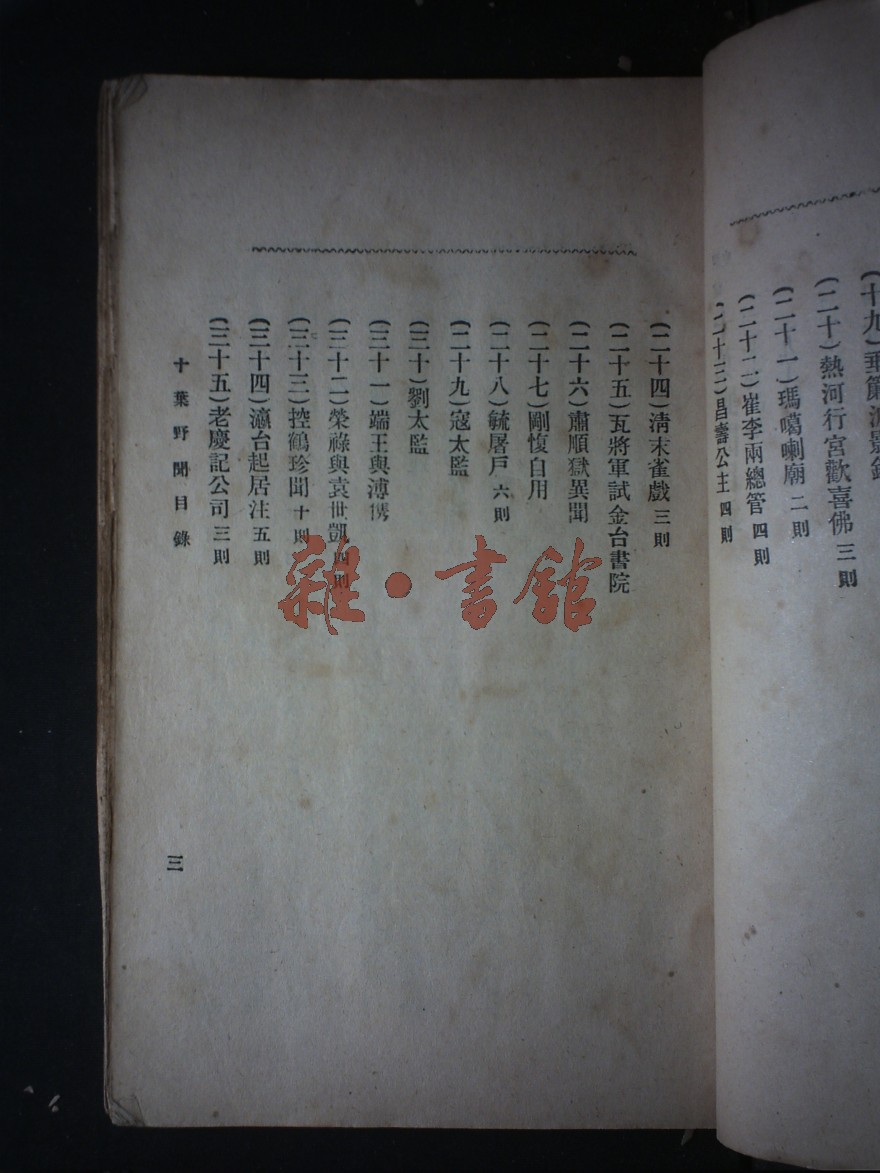 (十九)垂簾波影錄
(二十)熱河行宮歡喜佛 三則
(二十一)瑪噶喇廟 二則
(二十二)崔李兩總管 四則
(二十三)昌壽公主 四則
(二十四)清末雀戲 三則
(二十五)瓦將軍試金台書院
(二十六)肅順獄異聞
(二十七)剛愎自用
(二十八)毓屠戶 六則
(二十九)寇太監
(三十)劉太監
(三十一)端王與溥儁
(三十二)榮祿與袁世凱 四則
(三十三)控鶴珍聞 十則
(三十四)瀛台起居注 五則
(三十五)老慶記公司 三則
十葉野聞目錄
三
雜·書館